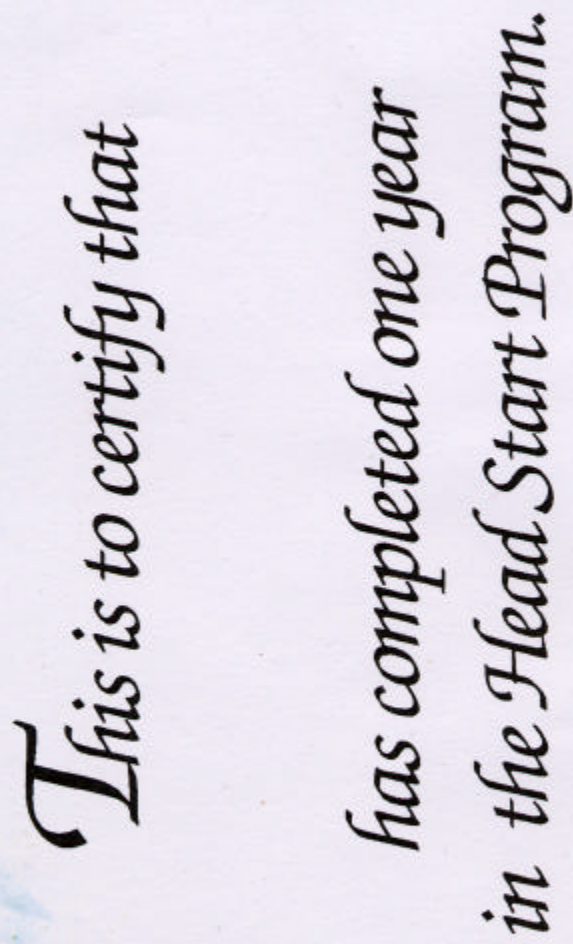 This is to certify that
has completed one year
in the Head Start Program.